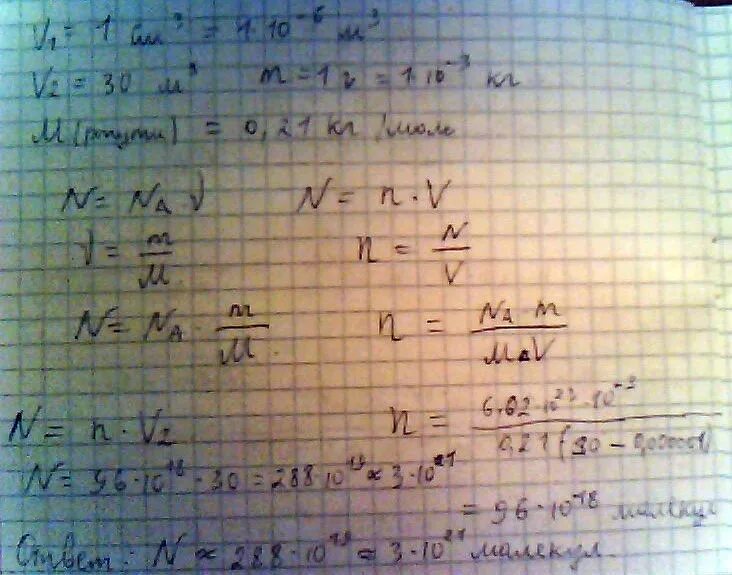 V₁ = 1 см³ = 1·10⁻⁶ м³
V₂ = 30 м³ m = 1 г = 1·10⁻³ кг
M (ртути) = 0,21 кг/моль
N = N_A ν N = n · V
ν = m/M n = N/V
N = N_A · m/M n = N_A · m / M ΔV
N = n · V₂ n = 6.02·10²³·10⁻³ / 0,21 (30 − 0,000001)
N = 96·10¹⁸ · 30 = 288·10¹⁹ ≈ 3·10²¹
= 96·10⁻¹⁸ малекул
Ответ: N ≈ 288·10¹⁹ ≈ 3·10²¹ малекул.